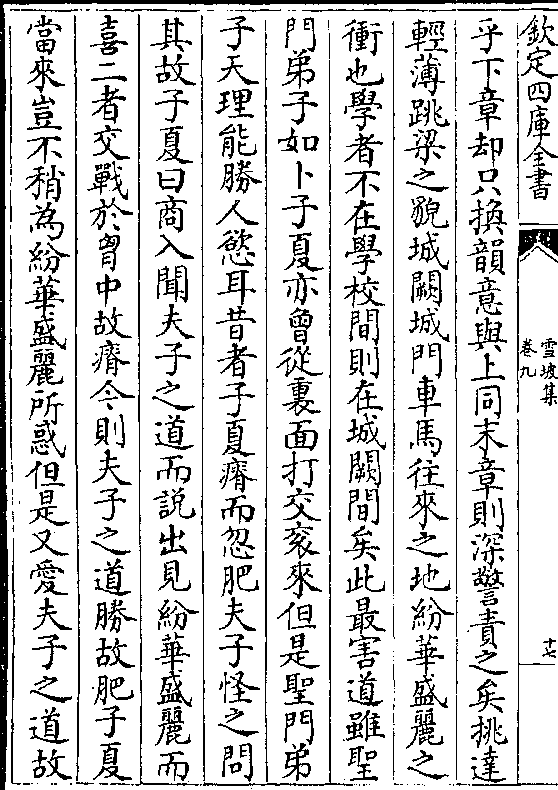 欽定四庫全書
雪坡集
卷九
十七
乎下章却只換韻意與上同末章則深警責之矣挑達
輕薄跳梁之貌城闕城門車馬往來之地紛華盛麗之
衝也學者不在學校間則在城闕間矣此最害道雖聖
門弟子如卜子夏亦曾從裏面打交衮來但是聖門弟
子天理能勝人慾耳昔者子夏瘠而忽肥夫子怪之問
其故子夏曰商入聞夫子之道而説出見紛華盛麗而
喜二者交戰於胷中故瘠今則夫子之道勝故肥子夏
當來豈不稍為紛華盛麗所惑但是又愛夫子之道故